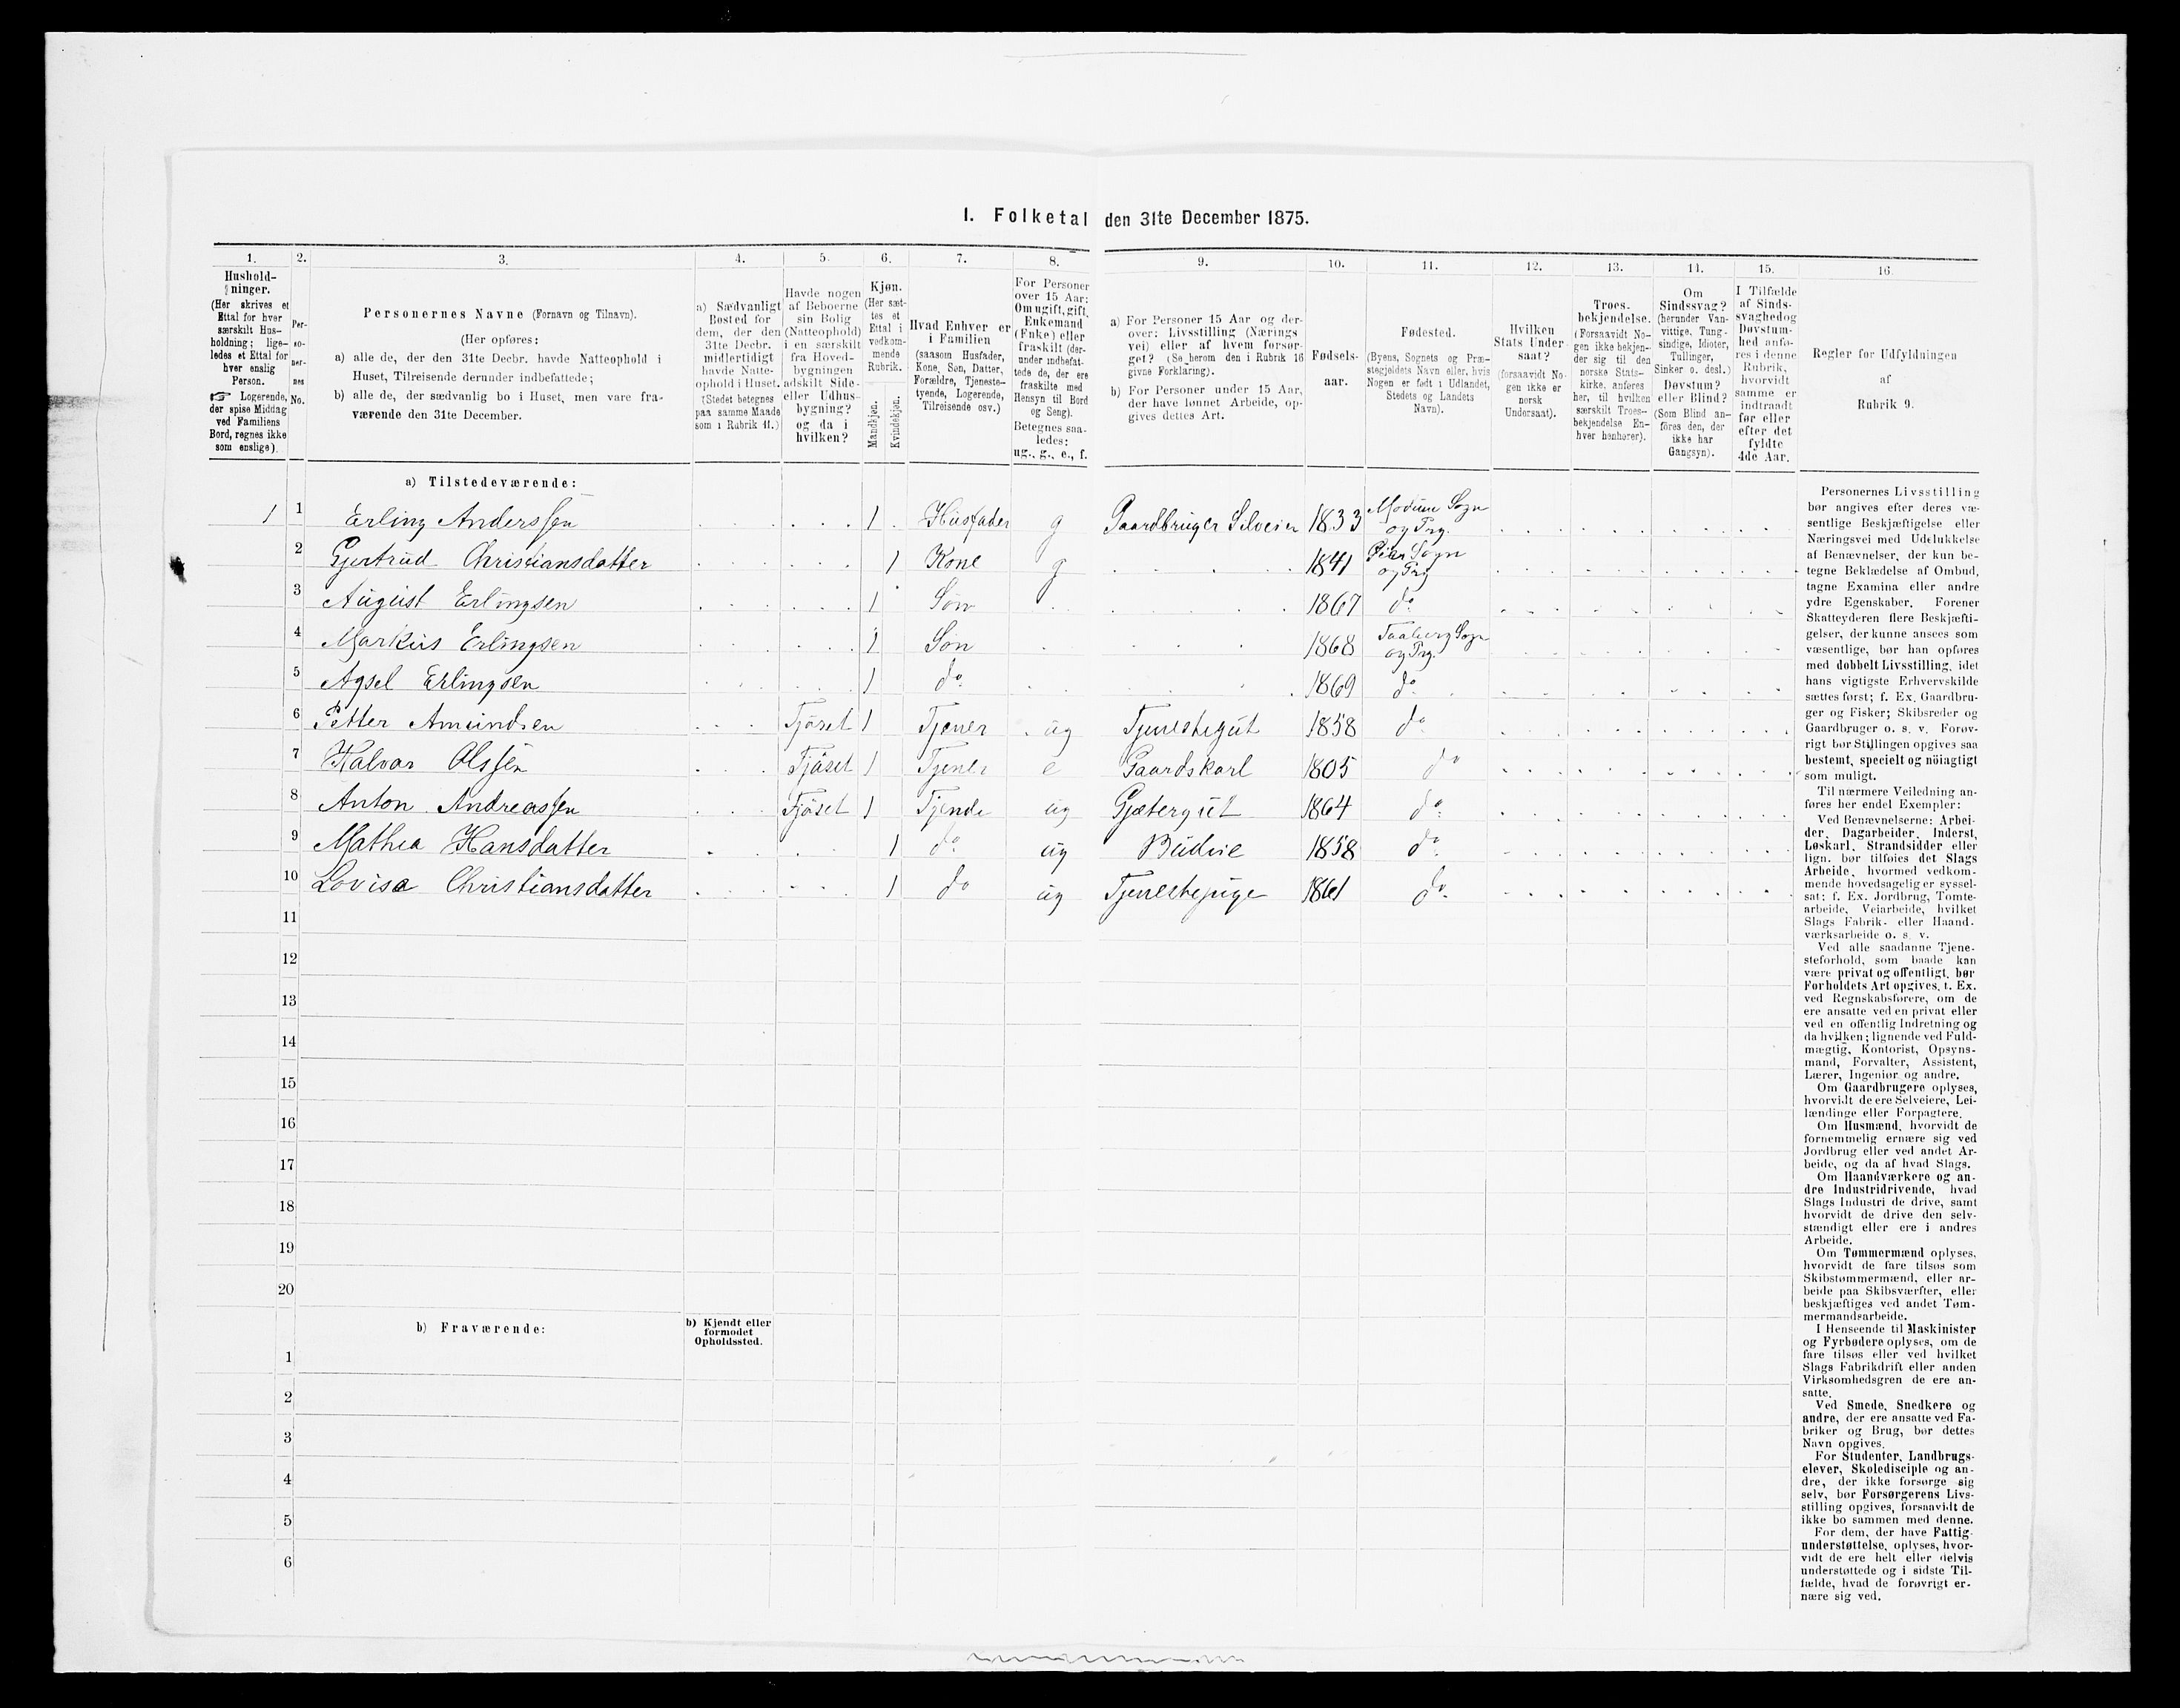 I. Folketal den 31te December 1875.
1. 2. 3. 4. 5. 6. 7. 8. 9. 10. 11. 12. 13. 14. 15. 16.
Hushold-
ninger.
(Her skrives et
Ettal for hver
særskilt Hus-
holdning; lige-
ledes et Ettal for
hver enslig
Person.
☞ Logerende,
der spise Middag
ved Familiens
Bord, regnes ikke
som enslige).
Per-
so-
ner-
nes
No.
Personernes Navne (Fornavn og Tilnavn).
(Her opføres:
a) alle de, der den 31te Decbr. havde Natteophold i
Huset, Tilreisende derunder indbefattede;
b) alle de, der sædvanlig bo i Huset, men vare fra-
værende den 31te December.
a) Sædvanligt
Bosted for
dem, der den
31te Decbr.
midlertidigt
havde Natte-
ophold i Huset.
(Stedet betegnes
paa samme Maade
som i Rubrik 11.)
Havde nogen
af Beboerne
sin Bolig
(Natteophold)
i en særskilt
fra Hoved-
bygningen
adskilt Side-
eller Udhus-
bygning?
og da i
hvilken?
Kjøn.
(Her sæt-
tes et
Ettal i
vedkom-
mende
Rubrik.
Mandkjøn.
Kvindekjøn.
Hvad Enhver er
i Familien
(saasom Husfader,
Kone, Søn, Datter,
Forældre, Tjeneste-
tyende, Logerende,
Tilreisende osv.)
For Personer
over 15 Aar:
Om ugift, gift,
Enkemand
(Enke) eller
fraskilt (der-
under indbefat-
tede de, der ere
fraskilte med
Hensyn til Bord
og Seng).
Betegnes saa-
ledes:
ug., g., e., f.
a) For Personer 15 Aar og der-
over: Livsstilling (Nærings-
vei) eller af hvem forsør-
get? (Se herom den i Rubrik 16
givne Forklaring).
b) For Personer under 15 Aar,
der have lønnet Arbeide, op-
gives dettes Art.
Fødsels-
aar.
Fødested.
(Byens, Sognets og Præ-
stegjeldets Navn eller, hvis
Nogen er født i Udlandet,
Stedets og Landets
Navn).
Hvilken
Stats Under-
saat?
(forsaavidt No-
gen ikke er
norsk
Undersaat).
Troes-
bekjendelse.
(Forsaavidt No-
gen ikke bekjen-
der sig til den
norske Stats-
kirke, anføres
her, til hvilken
særskilt Troes-
bekjendelse En-
hver henhører).
Om
Sindssvag?
(herunder Van-
vittige, Tung-
sindige, Idioter,
Tullinger,
Sinker o. desl.)
Døvstum?
eller Blind?
(Som Blind an-
føres den, der
ikke har
Gangsyn).
I Tilfælde
af Sinds-
svaghed og
Døvstum-
hed anfø-
res i denne
Rubrik,
hvorvidt
samme er
indtraadt
før eller
efter det
fyldte
4de Aar.
Regler for Udfyldningen
af
Rubrik 9.
a) Tilstedeværende:
1 1 Erling Anderssen 1 Husfader g Gaardbruger Selveier 1833 Modum Sogn og Prg.
2 Gjertrud Christiansdatter 1 Kone g 1841 Sogn og Prg
3 August Erlingsen 1 Søn 1867 do.
4 Markus Erlingsen 1 Søn 1868 Faaberg Sogn og Prg.
5 Agsel Erlingsen 1 do. 1869 do.
6 Petter Amundsen Fjøset 1 Tjener ug Tjenestegut 1858 do
7 Halvor Olssen Fjøset 1 Tjener e Gaardskarl 1805 do
8 Anton Andreassen Fjøset 1 Tjende ug Gjætergut 1864 do.
9 Mathea Hansdatter 1 do. ug Budeie 1858 do.
10 Lovisa Christiansdatter 1 do ug Tjenestepige 1861 do.
11
12
13
14
15
16
17
18
19
20
b) Fraværende:
b) Kjendt eller
formodet
Opholdssted.
1
2
3
4
5
6
Personernes Livsstilling
bør angives efter deres væ-
sentlige Beskjæftigelse eller
Næringsvei med Udelukkelse
af Benævnelser, der kun be-
tegne Beklædelse af Ombud,
tagne Examina eller andre
ydre Egenskaber. Forener
Skatteyderen flere Beskjæfti-
gelser, der kunne ansees som
væsentlige, bør han opføres
med dobbelt Livsstilling, idet
hans vigtigste Erhvervskilde
sættes først; f. Ex. Gaardbru-
ger og Fisker; Skibsreder og
Gaardbruger o. s. v. Forøv-
rigt bør Stillingen opgives saa
bestemt, specielt og nöiagtigt
som muligt.
Til nærmere Veiledning an-
føres her endel Exempler:
Ved Benævnelserne: Arbei-
der, Dagarbeider, Inderst,
Løskarl, Strandsidder eller
lign. bør tilføies det Slags
Arbeide, hvormed vedkom-
mende hovedsagelig er syssel-
sat; f. Ex. Jordbrug, Tømte-
arbeide, Veiarbeide, hvilket
Slags Fabrik- eller Haand-
værksarbeide o. s. v.
Ved alle saadanne Tjene-
steforhold, som baade kan
være privat og offentligt, bør
Forholdets Art opgives, t. Ex.
ved Regnskabsførere, om de
ere ansatte ved en privat eller
ved en offentlig Indretning og
da hvilken; lignende ved Fuld-
mægtig, Kontorist, Opsyns-
mand, Forvalter, Assistent,
Lærer, Ingeniør og andre.
Om Gaardbrugere oplyses,
hvorvidt de ere Selveiere, Lei-
lændinge eller Forpagtere.
Om Husmænd, hvorvidt de
fornemmelig ernære sig ved
Jordbrug eller ved andet Ar-
beide, og da af hvad Slags.
Om Haandværkere og an-
dre Industridrivende, hvad
Slags Industri de drive, samt
hvorvidt de drive den selv-
stændigt eller ere i andres
Arbeide.
Om Tømmermænd oplyses,
hvorvidt de fare tilsøs som
Skibstømmermænd, eller ar-
beide paa Skibsværfter, eller
beskjæftiges ved andet Tøm-
mermandsarbeide.
I Henseende til Maskinister
og Fyrbødere oplyses, om de
fare tilsøs eller ved hvilket
Slags Fabrikdrift eller anden
Virksomhedsgren de ere an-
satte.
Ved Smede, Snedkere og
andre, der ere ansatte ved Fa-
briker og Brug, bør dettes
Navn opgives.
For Studenter, Landbrugs-
elever, Skoledisciple og an-
dre, der ikke forsørge sig
selv, bør Forsørgerens Livs-
stilling opgives, forsaavidt de
ikke bo sammen med denne.
For dem, der have Fattig-
understøttelse, oplyses, hvor-
vidt de ere helt eller delvis
understøttede og i sidste Til-
fælde, hvad de forøvrigt er-
nære sig ved.